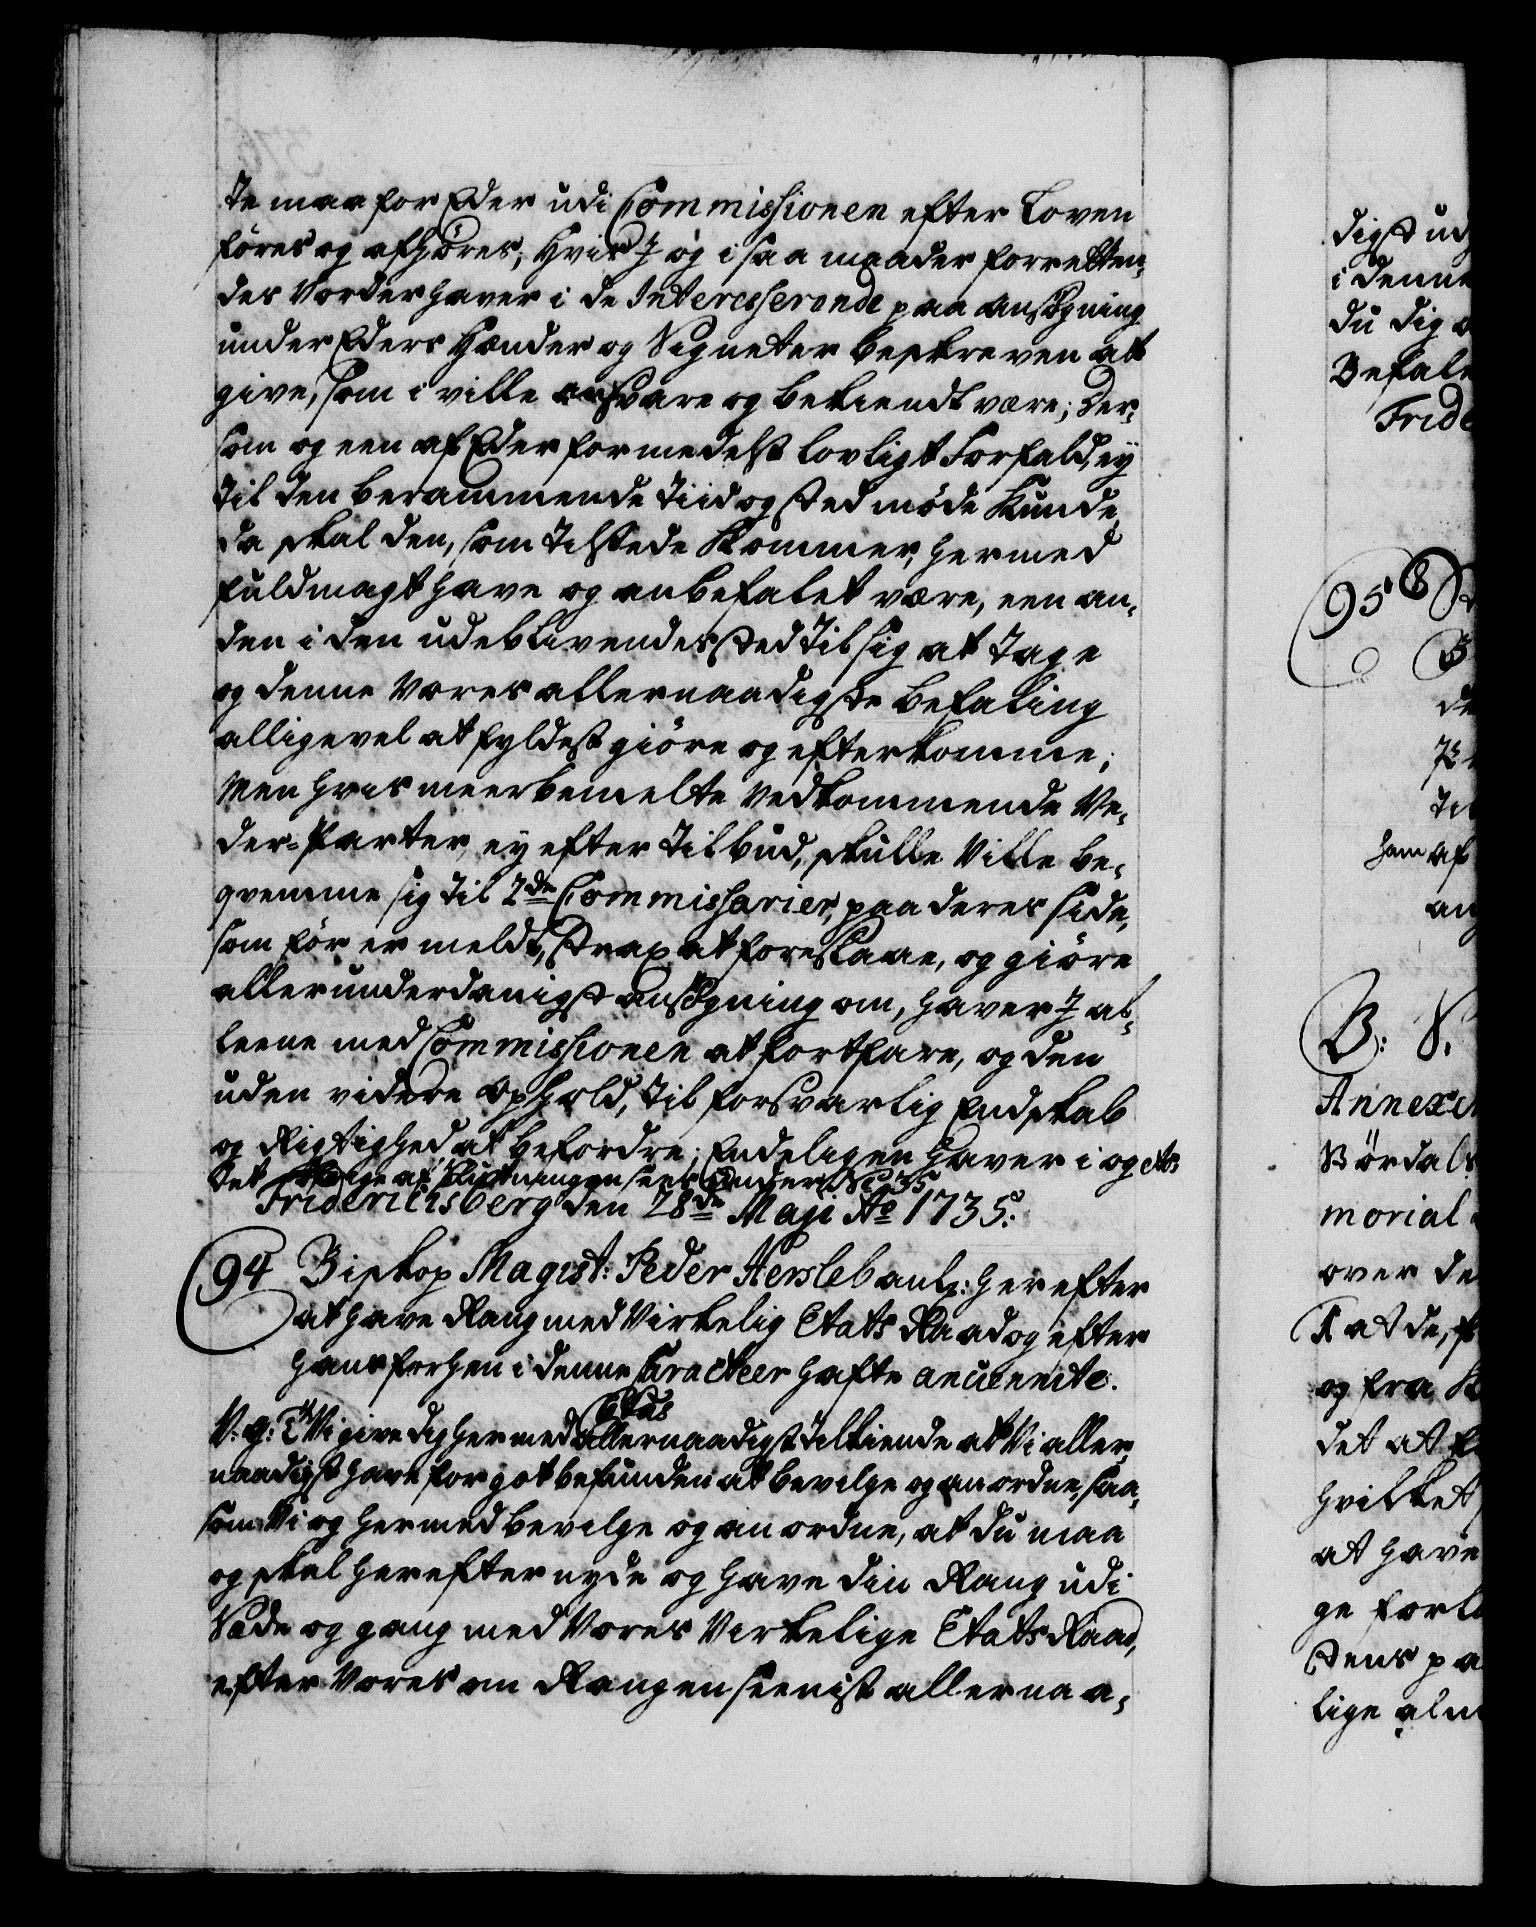 te maa for Eder udi Commissionen efter Loven
føres og afhøres; Hvis I og i saa maader forretten-
des vorder haver i de Interesserende paa ansøgning
under Eders Hænder og Signeter beskreven at
give, som i ville ansvare og bekiendt være; Der-
som og een af Eder formedelst lovligt Forfald, ey
til den berammende tiid og sted møde Kunde,
da skal den, som tilstede Kommer, hermed
fuldmagt have og anbefalet være, een an-
den i den udeblivendes sted til sig at tage
og denne Vores allernaadigste befaling
alligevel at fyldest giøre og efterkomme;
Men hvis meerbemelte vedkommende Ve-
der-Parter, ey efter tilbud, skulle ville be-
qvemme sig til 2de Commissarier, paa deres side,
som før er meldt, strax at foreslaae, og giøre
allerunderdanigst ansøgning om, haver I al-
leene med Commissionen at fortfare, og den
uden videre Ophold, til forsvarlig Endskab
og Rigtighed at befordre; Endeligen haver i og etc
Det øfrige af Slutningen sees under No 35
Friderichsberg den 28de Maji Ao 1735.
94 Biskop Magist: Peder Hersleb anl: herefter
at have Rang med Virkelig Etats Raad og efter
hans forhen i denne Caracteer hafte ancienite.
V: g: T: Vi give dig hermed allernaadigst tilkiende at Vi aller-
naadigst have for got befunden at bevilge og anordne, saa-
som Vi og hermed bevilge og anordne, at du maa
og skal herefter nyde og have din Rang udi
Sæde og gang med Vores Virkelige Etats Raad,
efter Vores om Rangen seenist allernaa-
digst ud
i denne
du dig
Befale
Fride
95
B
de
til
ham af
an
B: V.
Annexe
Børdals
morial
over de
at de,
og fra
det at
hvilket
at have
ge forl
stens pa
lige alm